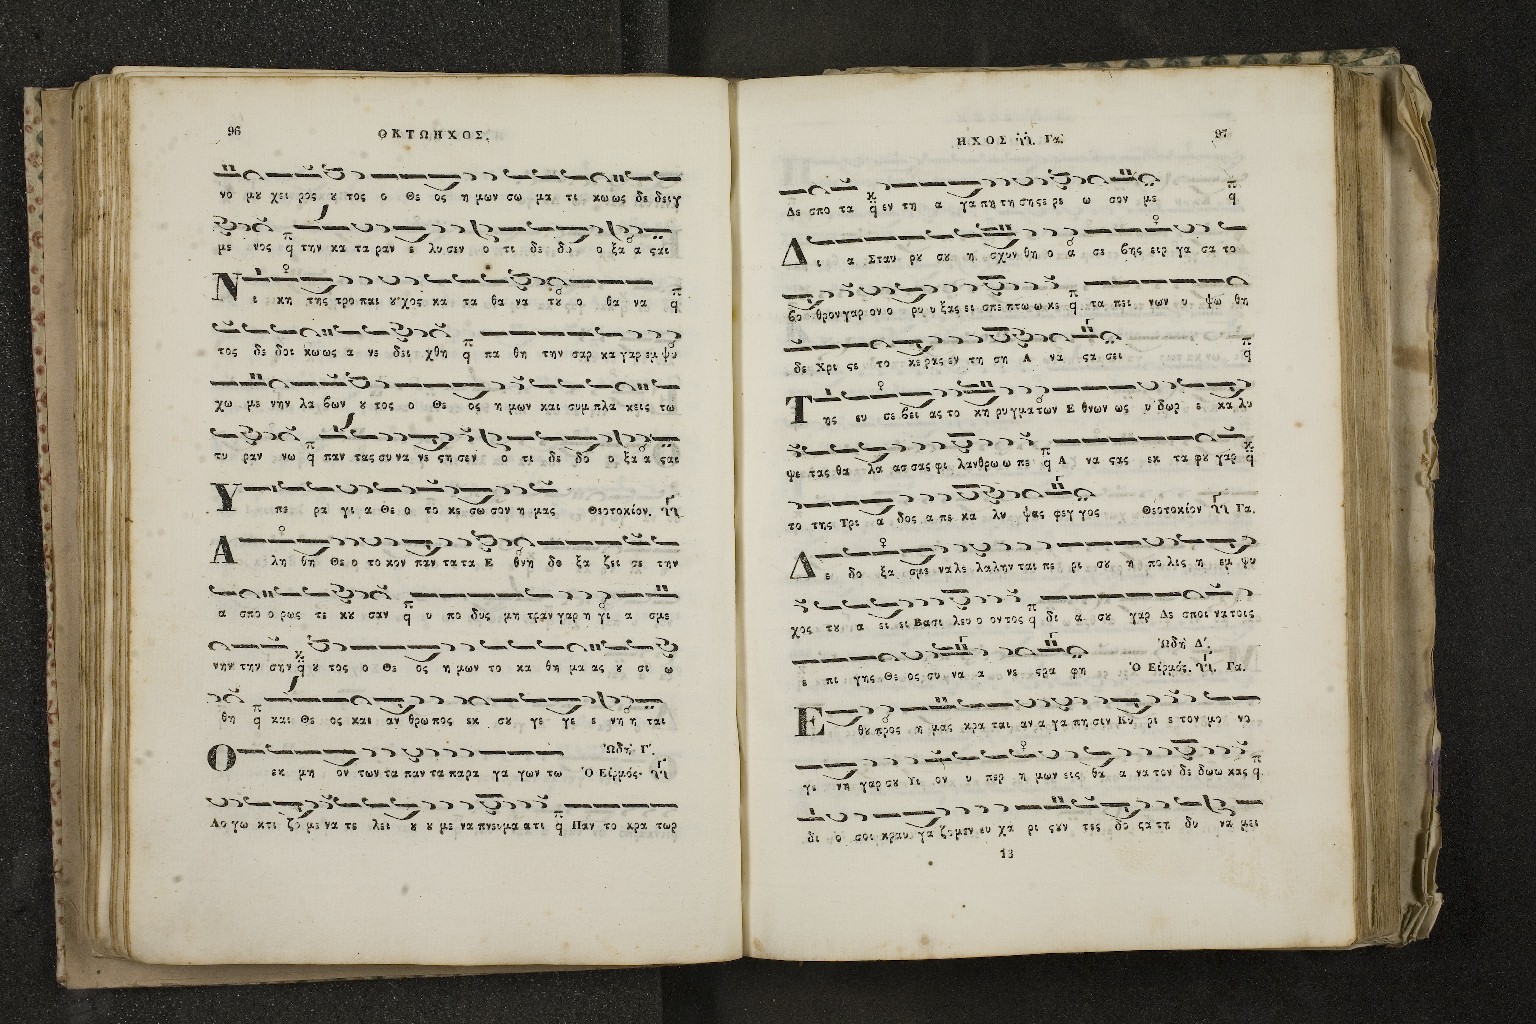 96
ΟΚΤΩΗΧΟΣ.
νο μου χει ρος ου τος ο Θε ος η μων σω μα τι κω ως δε δειγ
με νος την κα τα ραν ε λυ σεν ο τι δε δο ο ξα α σαι
Νι κη της τρο παι ου χος κα τα θα να του ο θα να
τος δε δοι κω ως α νε δει χθη πα θη την σαρ κα γαρ εμ ψυ
χω με νην λα βων ου τος ο Θε ος η μων και συμ πλα κεις τω
τυ ραν νω παν τας συ να νε ςη σεν ο τι δε δο ο ξα α ςαι
Υ πε ρα γι α Θε ο το κε σω σον η μας Θεοτοκίον.
Α λη θη Θε ο το κον παν τα τα Ε θνη δο ξα ζει σε την
α σπο ο ρως τε κου σαν ου υ πο δυς μη τραν γαρ η γι α σμε
νην την σην ου τος ο Θε ος η μων το κα θη μα ας ου σι ω
θη και Θε ος και αν θρω πος εκ σου γε γε ε νη η ται
Ο εκ μη ον των τα παν τα παρα γα γων τω Ὠδὴ Γ΄. Ὁ Εἱρμός.
Λο γω κτι ζο με να τε λει ου ου με να πνευμα ατι Παν το κρα τωρ
ΗΧΟΣ Γα.
97
Δε σπο τα εν τη α γα πη τη σης ε ρε ω σον με
Δι α Σταυ ρου σου η σχυν θη ο α σε βης ειρ γα σα το
βο θρον γαρ ον ο ρυ υ ξας ει σπε πτω ω κε τα πει νων υ ψω θη
δε Χρι ςε το κε ρας εν τη ση Α να ςα σει
Της ευ σε βει ας το κη ρυγμα των Ε θνων ως υ δωρ ε κα λυ
ψε τας θα λα ας σας φι λανθρω ω πε Α να ςας εκ τα φου γαρ
το της Τρι α δος α πε κα λυ ψας φεγ γος Θεοτοκίον Γα.
Δε δο ξα σμε να λε λαλην ται πε ρι σου η πο λις η εμ ψυ
χος του α ει ει Βασι λευ ο ον τος δι α σου γαρ Δε σποι να τοις
ε πι γης Θε ος συ να α νε ςρα φη Ὠδὴ Δ΄. Ὁ Εἱρμός. Γα.
Ε θου προς η μας κρα ται αν α γα πη σιν Κυ ρι ε τον μο νο
γε νη γαρ σου Υι ον υ περ η μων εις θα α να τον δε δω ω κας
δι ο σοι κραυ γα ζομεν ευ χα ρι ςουν τες δο ξα τη δυ να μει
13